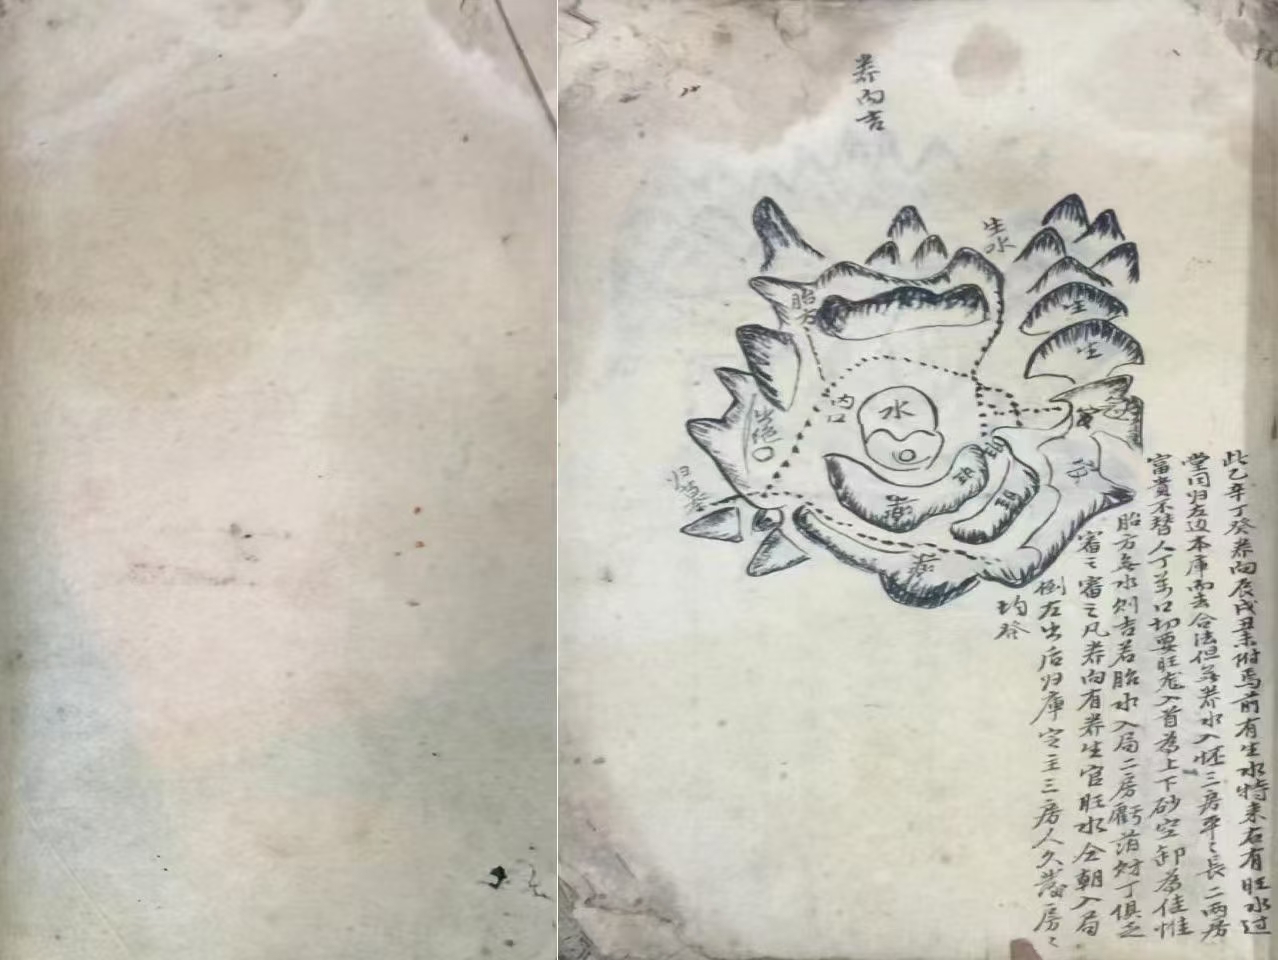 养向吉
生水
胎方
生
生
内口
水
出绝
归墓
此乙辛丁癸养向辰戌丑未附焉前有生水特来右有旺水过
堂同归左边本库而去合法但养水入怀三房平々長二两房
富貴不替人丁万口切要旺龙入首為上下砂空卸為佳惟
胎方無水则吉若胎水入局二房虧消财丁俱乏
審之審之凡养向有养生官旺水仝朝入局
倒左出后归庫定主三房人久發房々
均發